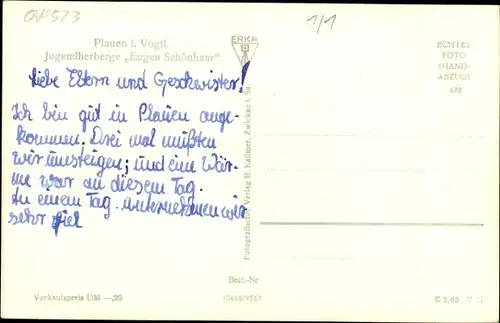 QF523
1/1
Plauen i. Vogtl.
Jugendherberge „Eugen Schönhaar"
ERKA
ECHTES
FOTO
(HAND-
ABZUG)
Liebe Eltern und Geschwister!
Ich bin gut in Plauen ange-
kommen. Drei mal mußten
wir umsteigen; und eine Wär-
me war an diesem Tag.
An einem Tag unternehmen wir
sehr viel
Fotografischer Verlag R. Kallmer, Zwickau i. Sa.
Best.-Nr
Verkaufspreis DM —,20